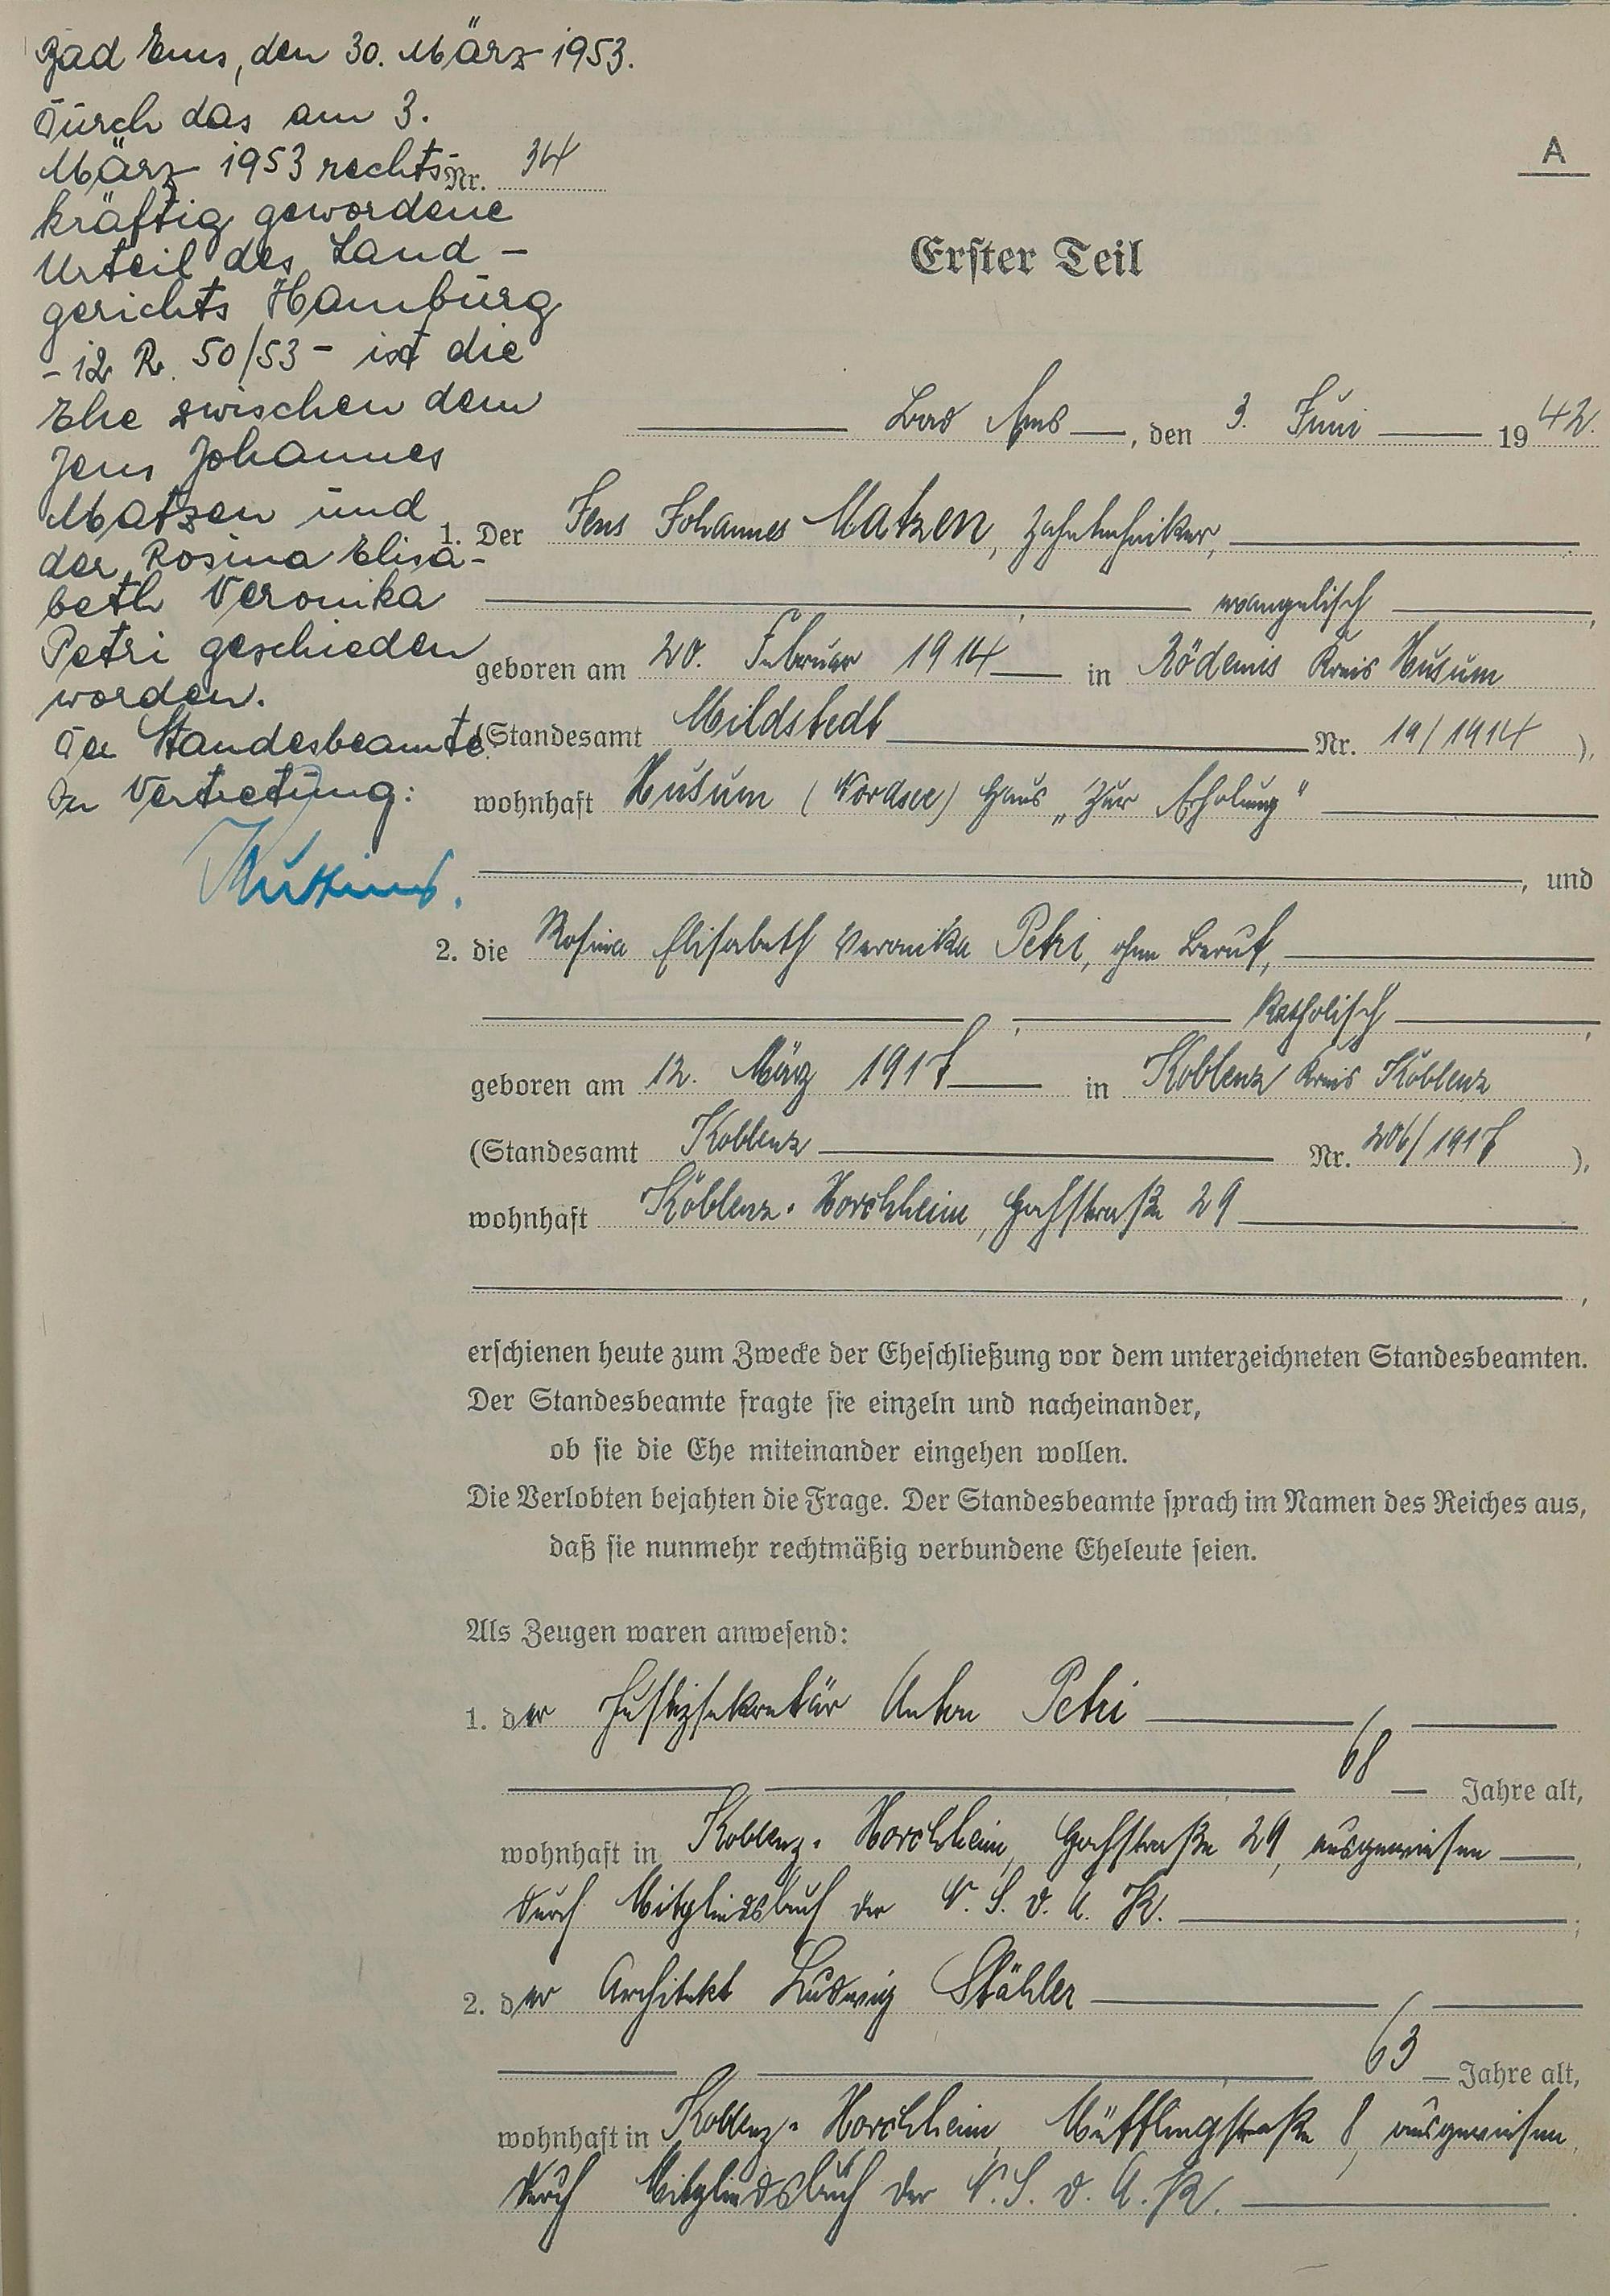 Bad Ems, den 30. März 1953.
Durch das am 3.
März 1953 rechts-
kräftig gewordene
Urteil des Land-
gerichts Hamburg
- 12 R. 50/53 - ist die
Ehe zwischen dem
Jens Johannes
Matzen und
der Rosina Elisa-
beth Veronika
Petri geschieden
worden.
Der Standesbeamte
In Vertretung:
Nr. 34
A
Erster Teil
Bad Ems, den 3. Juni 1942.
1. Der Jens Johannes Matzen, Zahntechniker,
evangelisch,
geboren am 20. Februar 1914 in Rödemis Kreis Husum
(Standesamt Mildstedt Nr. 19/1914),
wohnhaft Husum (Nordsee) Haus „Zur Erholung"
, und
2. die Rosina Elisabeth Veronika Petri, ohne Beruf,
katholisch,
geboren am 12. März 1917 in Koblenz Kreis Koblenz
(Standesamt Koblenz Nr. 206/1917),
wohnhaft Koblenz-Horchheim, Hochstraße 29
,
erschienen heute zum Zwecke der Eheschließung vor dem unterzeichneten Standesbeamten.
Der Standesbeamte fragte sie einzeln und nacheinander,
ob sie die Ehe miteinander eingehen wollen.
Die Verlobten bejahten die Frage. Der Standesbeamte sprach im Namen des Reiches aus,
daß sie nunmehr rechtmäßig verbundene Eheleute seien.
Als Zeugen waren anwesend:
1. der Justizsekretär Anton Petri,
68 Jahre alt,
wohnhaft in Koblenz-Horchheim, Hochstraße 29, ausgewiesen
durch Mitgliedsbuch der N.S.D.A.P.;
2. der Architekt Ludwig Stähler,
63 Jahre alt,
wohnhaft in Koblenz-Horchheim, Müfflingstraße 8, ausgewiesen
durch Mitgliedsbuch der N.S.D.A.P.